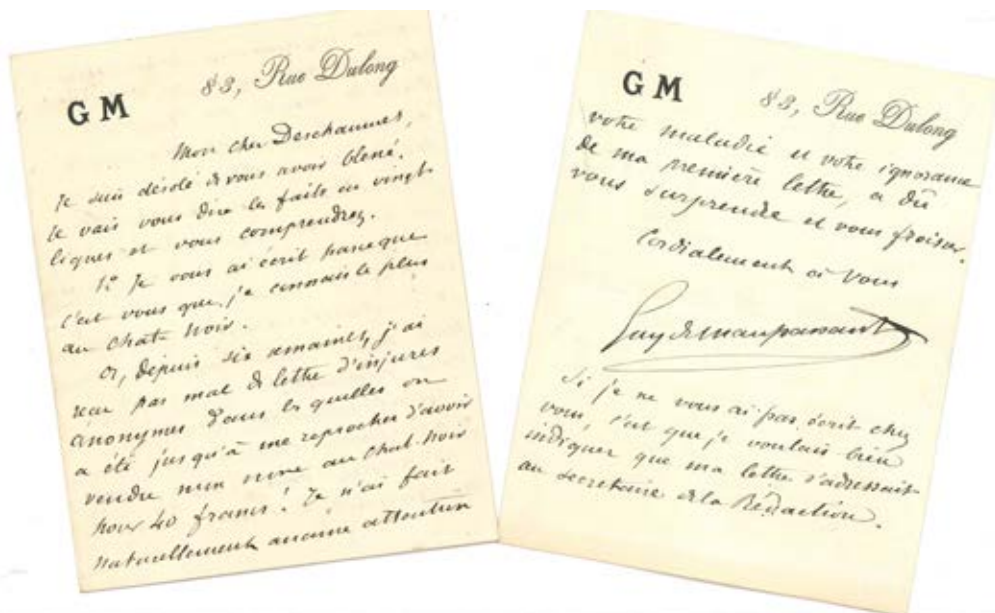 G M
83, Rue Dulong
Mon cher Deschaumes,
Je suis désolé de vous avoir blessé.
Je vais vous dire les faits en vingt
lignes et vous comprendrez.
1º Je vous ai écrit parce que
c'est vous que je connais le plus
au Chat-Noir.
Or, depuis six semaines, j'ai
reçu pas mal de lettre d'injures
anonymes dans lesquelles on
a été jusqu'à me reprocher d'avoir
vendu mon nom au Chat-Noir
pour 40 francs! Je n'ai fait
naturellement aucune attention
G M
83, Rue Dulong
votre maladie et votre ignorance
de ma première lettre, a dû
vous surprendre et vous froisser.
Cordialement à vous
Guy de Maupassant
Si je ne vous ai pas écrit chez
vous, c'est que je voulais bien
indiquer que ma lettre s'adressait
au secrétaire de la Rédaction.